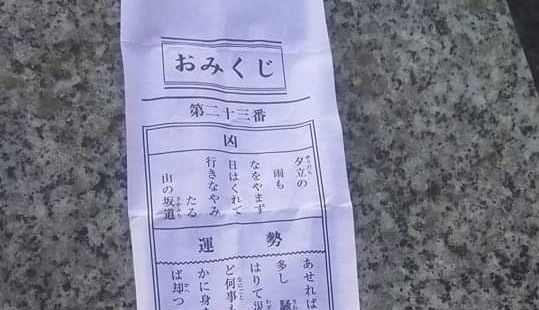 おみくじ
第二十三番
凶
夕立の
雨も
なをやまず
日はくれて
行きなやみ
たる
山の坂道
運勢
あせれば
多し 騒
はりて災
ど何事も
かに身
ば却つ